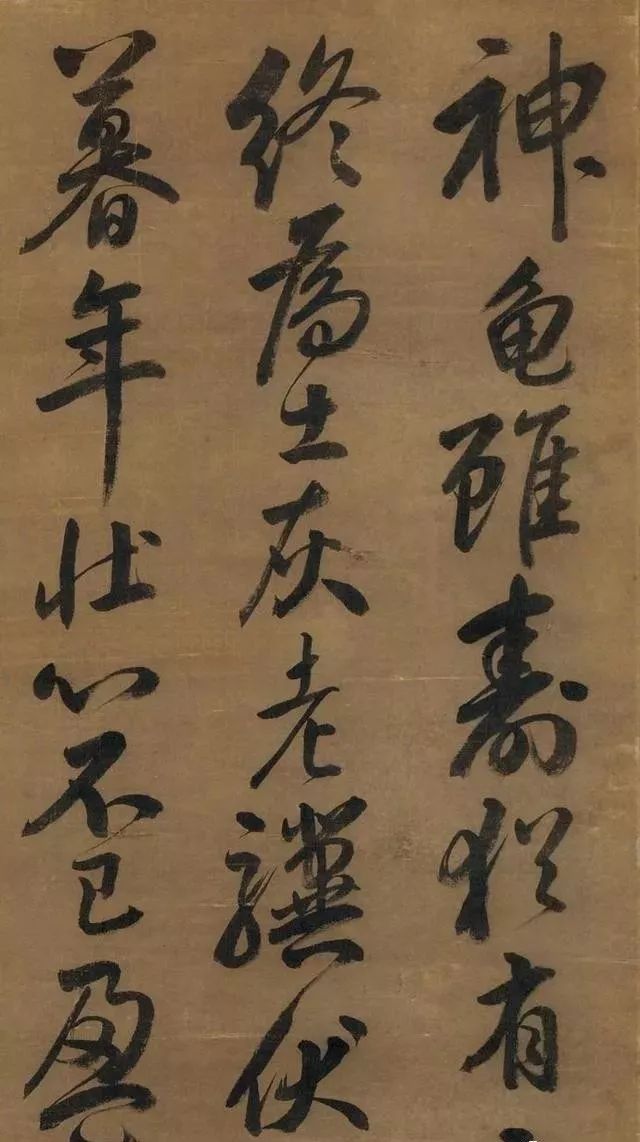 神龟雖壽猶有
終為土灰老驥伏
暮年壯心不已盈